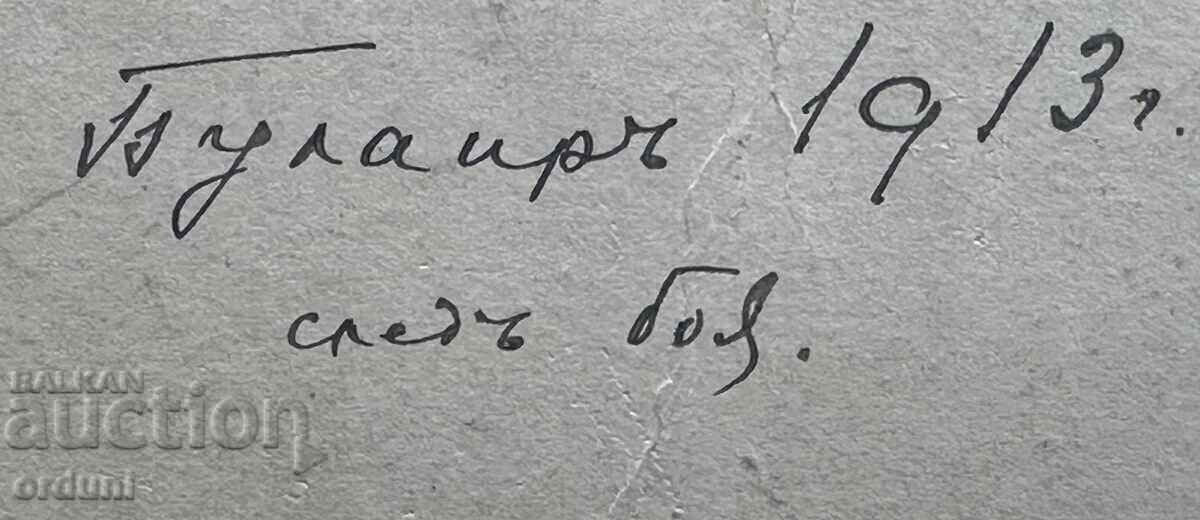 Булаиръ 1913 г.
следъ боя.
BALKAN
auction
orduni